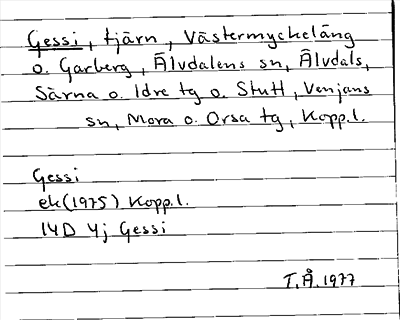 Gessi, tjärn, Västermyckeläng
o. Garberg, Älvdalens sn, Älvdals,
Särna o. Idre tg o. Stutt, Venjans
sn, Mora o. Orsa tg, Kopp.l.
Gessi
ek(1975) Kopp.l.
14D 4j Gessi
T.Å.1977